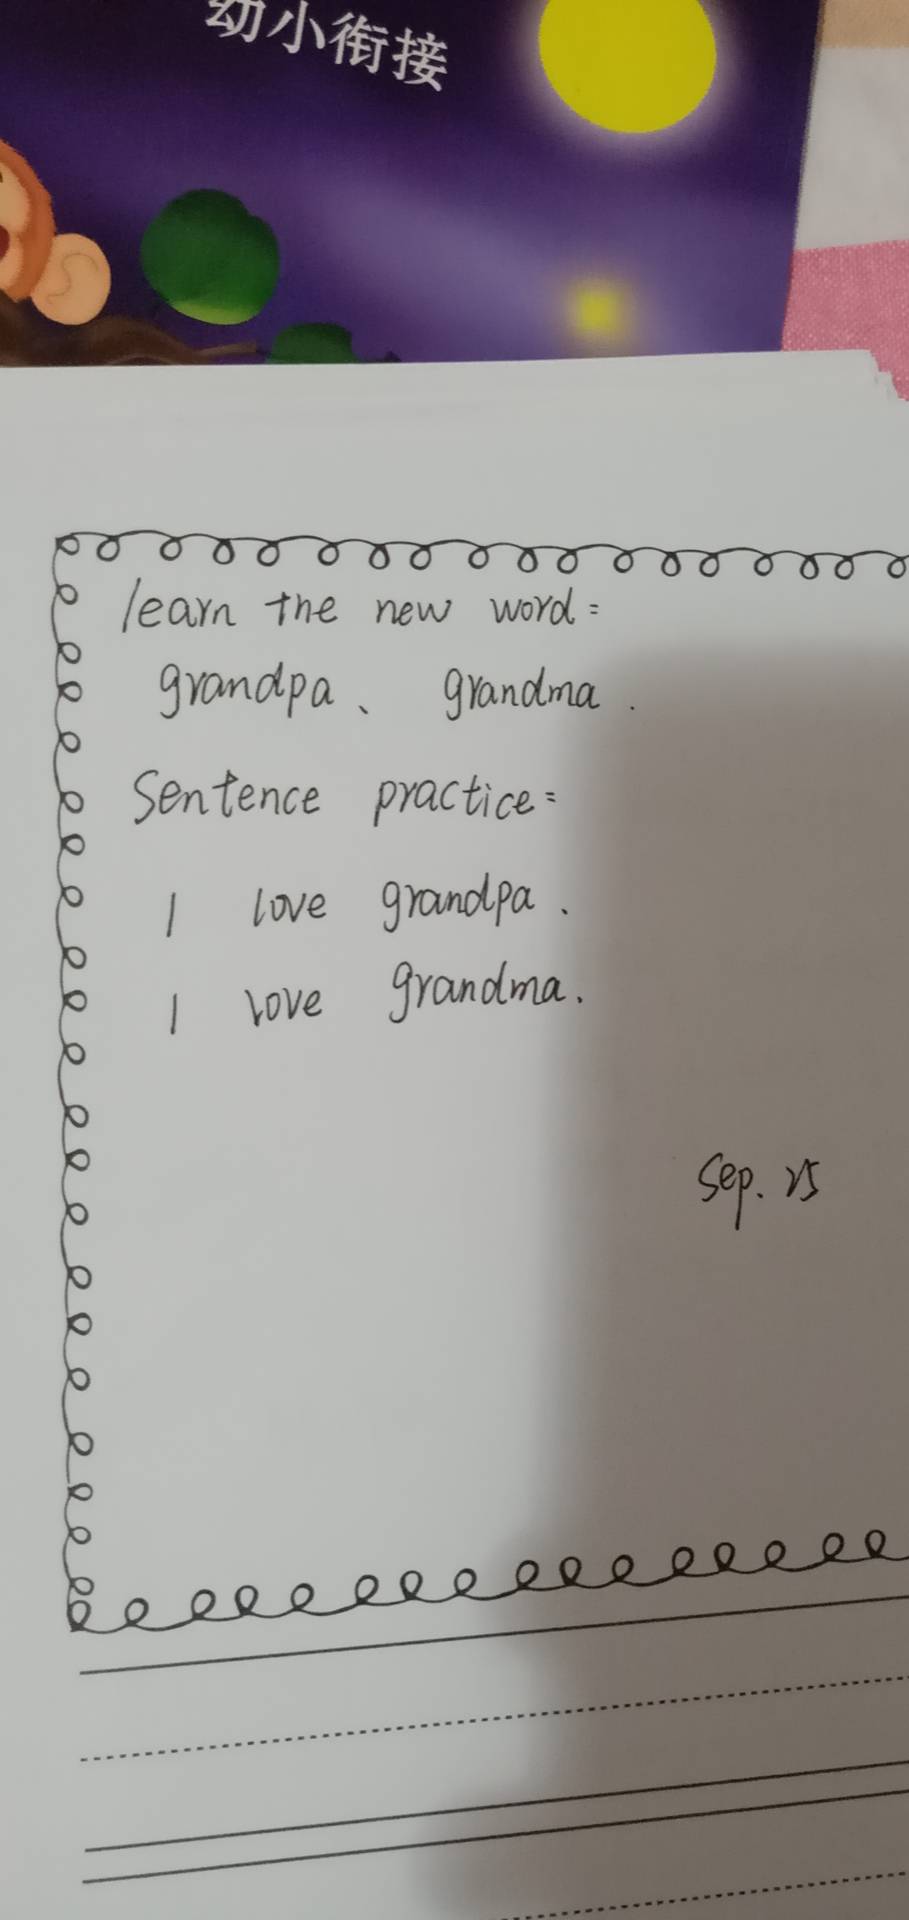 幼小衔接
learn the new word:
grandpa、 grandma.
Sentence practice:
I love grandpa.
I love grandma.
Sep. 25